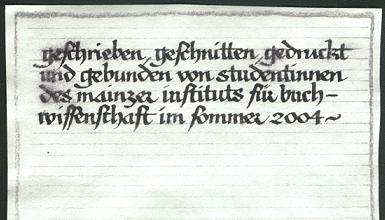 geschrieben, geschnitten, gedruckt
und gebunden von studentinnen
des mainzer instituts für buch-
wissenschaft im sommer 2004~